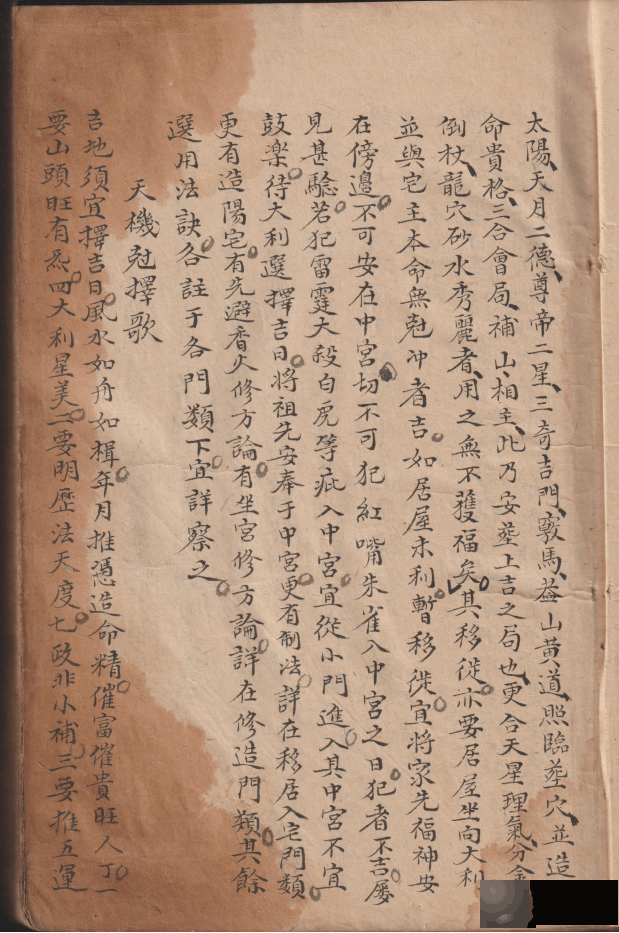 太陽天月二德尊帝二星三奇吉門竅馬蓋山黃道照臨塟穴並造
命貴格三合會局補山相主此乃安塟上吉之局也更合天星理氣分金
倒杖龍穴砂水秀麗者用之無不獲福矣其移徙亦要居屋坐向大利
並與宅主本命無尅冲者吉如居屋未利暫移徙宜將家先福神安
在傍邊不可安在中宮切不可犯紅嘴朱雀入中宮之日犯者不吉屢
見甚驗若犯雷霆大殺白虎等疵入中宮宜從小門進入其中宮不宜
鼓楽待大利選擇吉日將祖先安奉于中宮更有制法詳在移居入宅門類
更有造陽宅有先避香火修方論有坐宮修方論詳在修造門類其餘
選用法訣各註于各門類下宜詳察之
天機尅擇歌
吉地須宜擇吉日風水如舟如楫年月推憑造命精催富催貴旺人丁一
要山頭旺有炁四大利星美二要明歷法天度七政非小補三要推五運